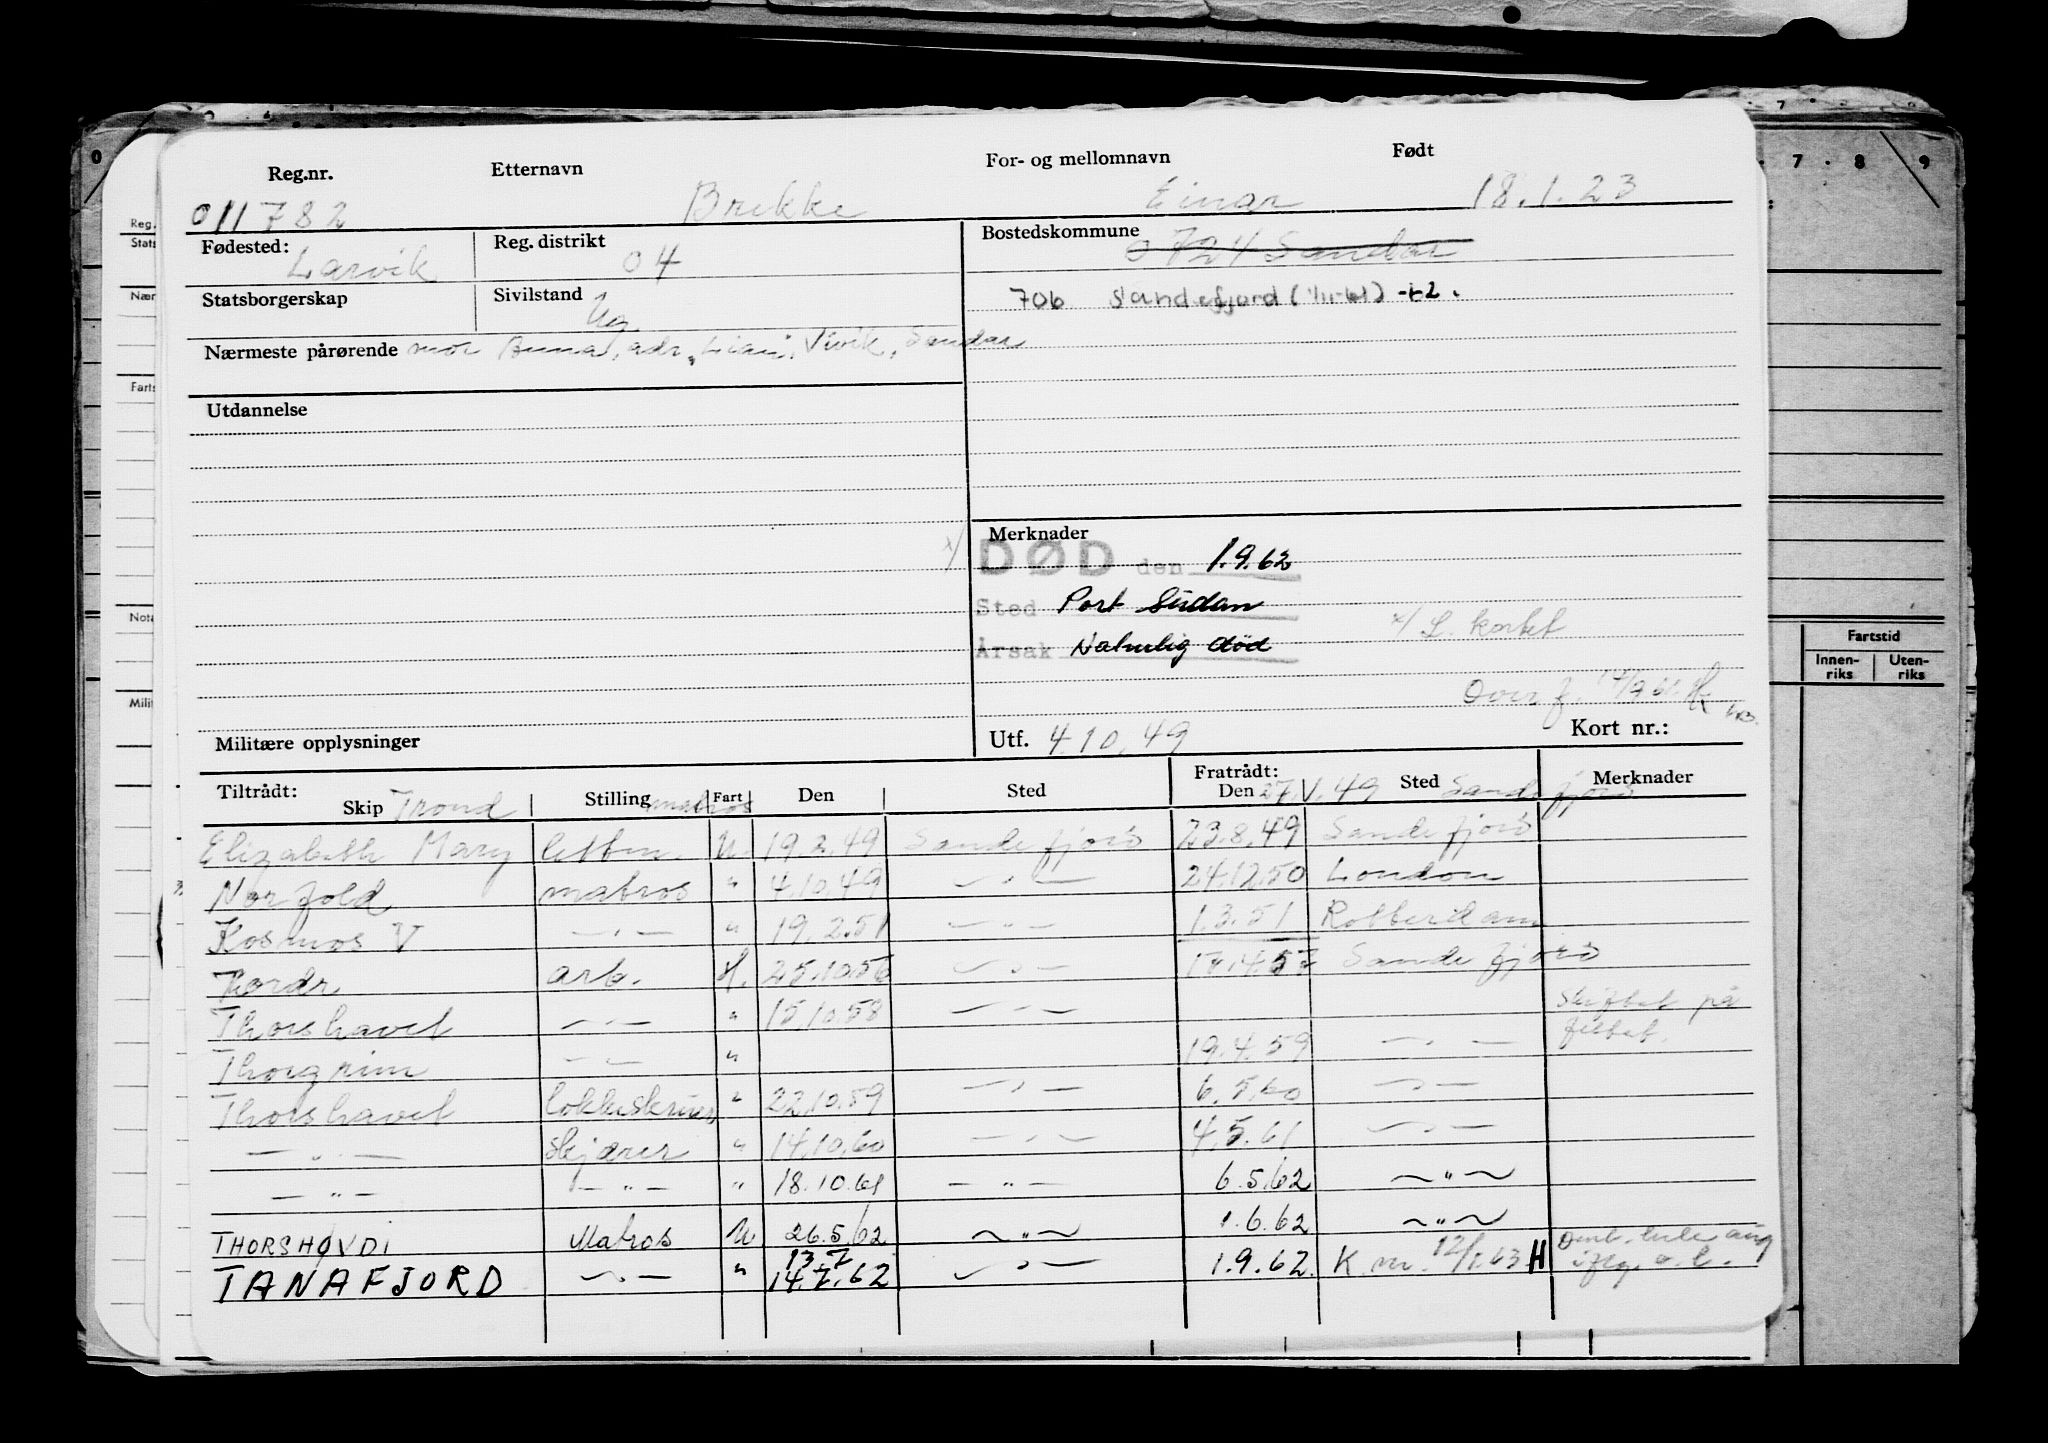 Reg.nr. Etternavn For- og mellomnavn Født
011782 Brekke Einar 18.1.23
Fødested: Larvik Reg. distrikt 04 Bostedskommune 0724 Sandar
Statsborgerskap Sivilstand Ug. 706 Sandefjord (1/11-61) +2.
Nærmeste pårørende mor Anna, adr. "Liani", Vivik, Sandar
Utdannelse
Merknader
DØD den 1.9.62
Sted Port Sudan
x/ L. kortet
Årsak Naturlig død
Overf.
Militære opplysninger Utf. 4.10.49 Kort nr.:
Tiltrådt: Fratrådt:
Skip Stilling Fart Den Sted Den Sted Merknader
Trond matros 27.V.49 Sandefjord
Elizabeth Mary lettm. U. 19.2.49 Sandefjord 23.8.49 Sandefjord
Norfold matros " 4.10.49 — " — 24.12.50 London
Kosmos V — " — " 19.2.51 — " — 1.3.51 Rotterdam
Thordr arb. H. 25.10.56 — " — 17.4.57 Sandefjord
Thorshavet — " — " 15.10.58 — " — Skiftet på
feltet.
Thorgrim — " — " 19.4.59 — " —
Thorshavet " 22.10.59 — " — 6.5.60 — " —
— " — skjærer " 14.10.60 — " — 4.5.61 — " —
— " — — " — " 18.10.61 — " — 6.5.62 — " —
THORSHØVDI Matros U 26.5.62 — " — 1.6.62 — " —
13.7
TANAFJORD — " — " 14.7.62 — " — 1.9.62 K. nr. 12/1.63 H
0
7 8 9
Reg.
Stats
Nær
Farts
Nota
Milit
Fartstid
Innen-
riks
Uten-
riks